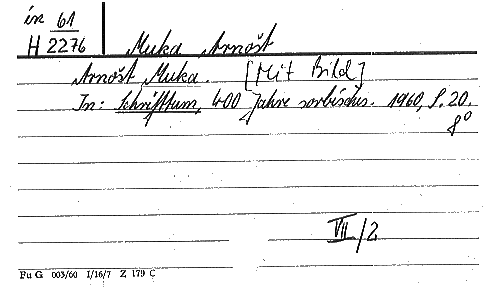 in 61
H 2276 Muka Arnošt
Arnošt Muka. [Mit Bild]
In: Schrifttum, 400 Jahre sorbisches. 1960, S. 20.
8°
VII/2
Fu G 003/60 I/16/7 Z 179 C